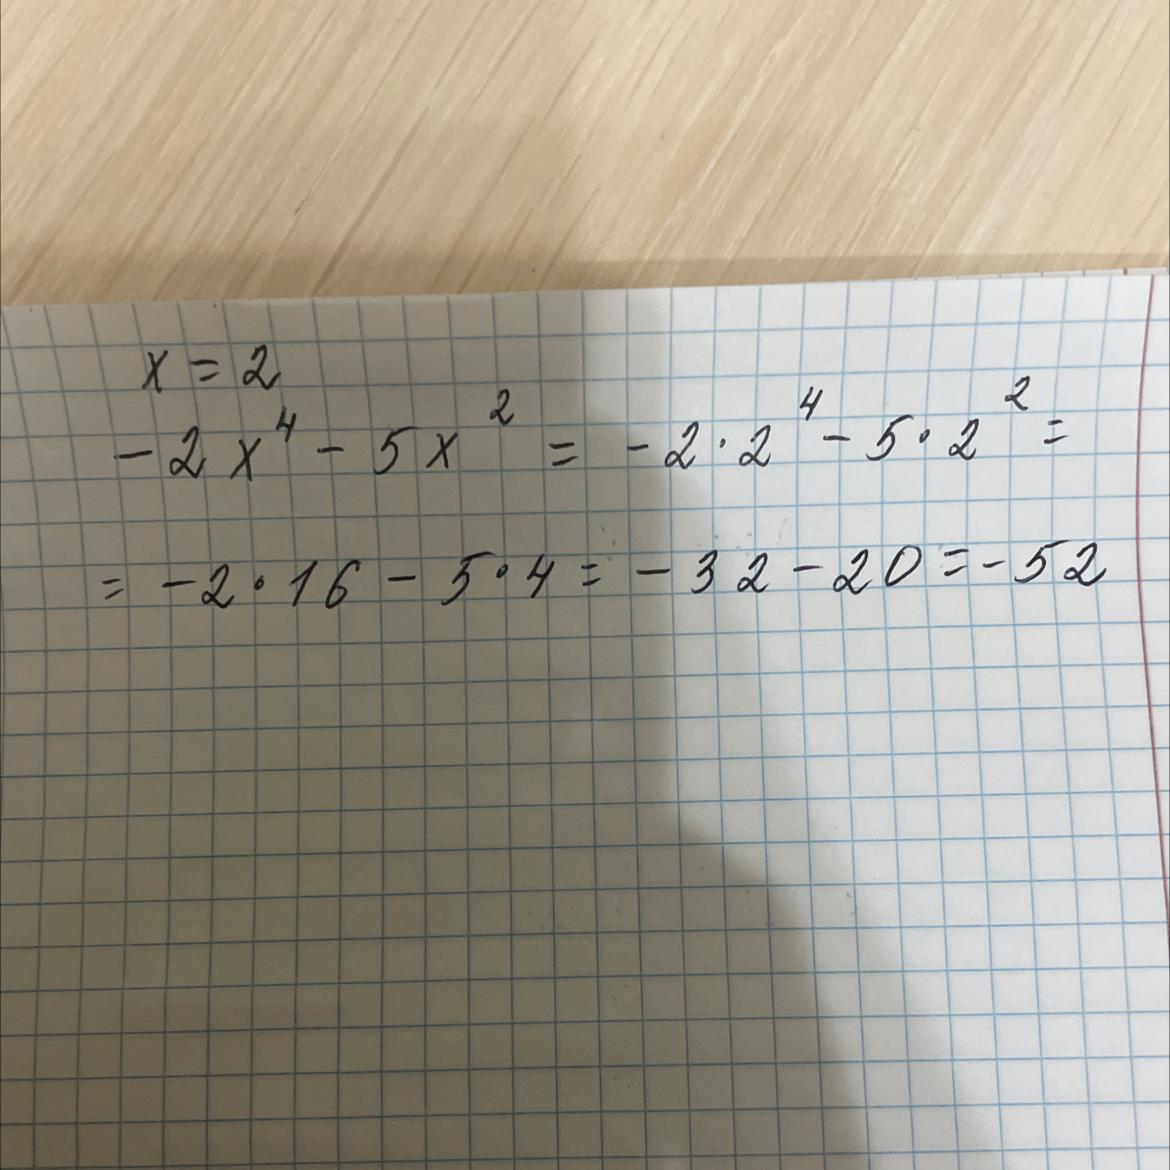 x = 2
-2x⁴ - 5x² = -2·2⁴ - 5·2² =
= -2·16 - 5·4 = -32 - 20 = -52